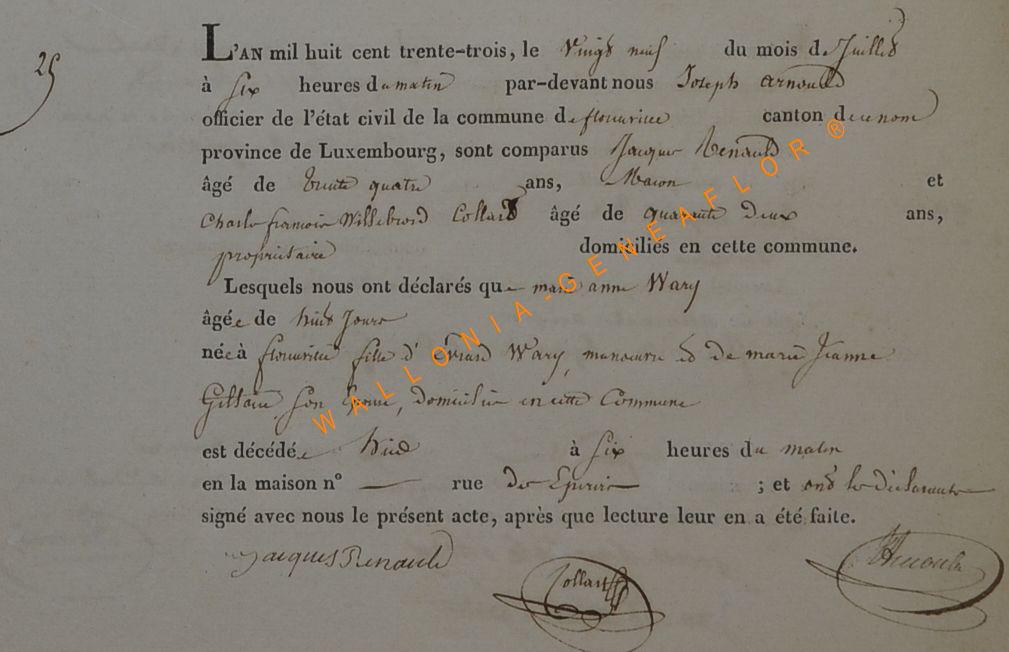 25
L'AN mil huit cent trente-trois, le Vingt neuf du mois de Juillet
à Six heures du matin par-devant nous Joseph Arnould
officier de l'état civil de la commune de florenville canton de ce nom
province de Luxembourg, sont comparus Jacques Renauld
âgé de trente quatre ans, Macon et
Charle francois Willebrord Collard âgé de quarante Deux ans,
propriétaire domiciliés en cette commune.
Lesquels nous ont déclarés que marie anne Wary
âgée de huit Jours
née à florenville fille d' Evrard Wary, manœuvre et de marie Jeanne
son Epouse, domicilies en cette Commune
est décédée hier à Six heures du matin
en la maison n° — rue des ; et ont les Déclarants
signé avec nous le présent acte, après que lecture leur en a été faite.
Jacques Renauld
Collard
Arnould
WALLONIA-GENEAFLOR ®